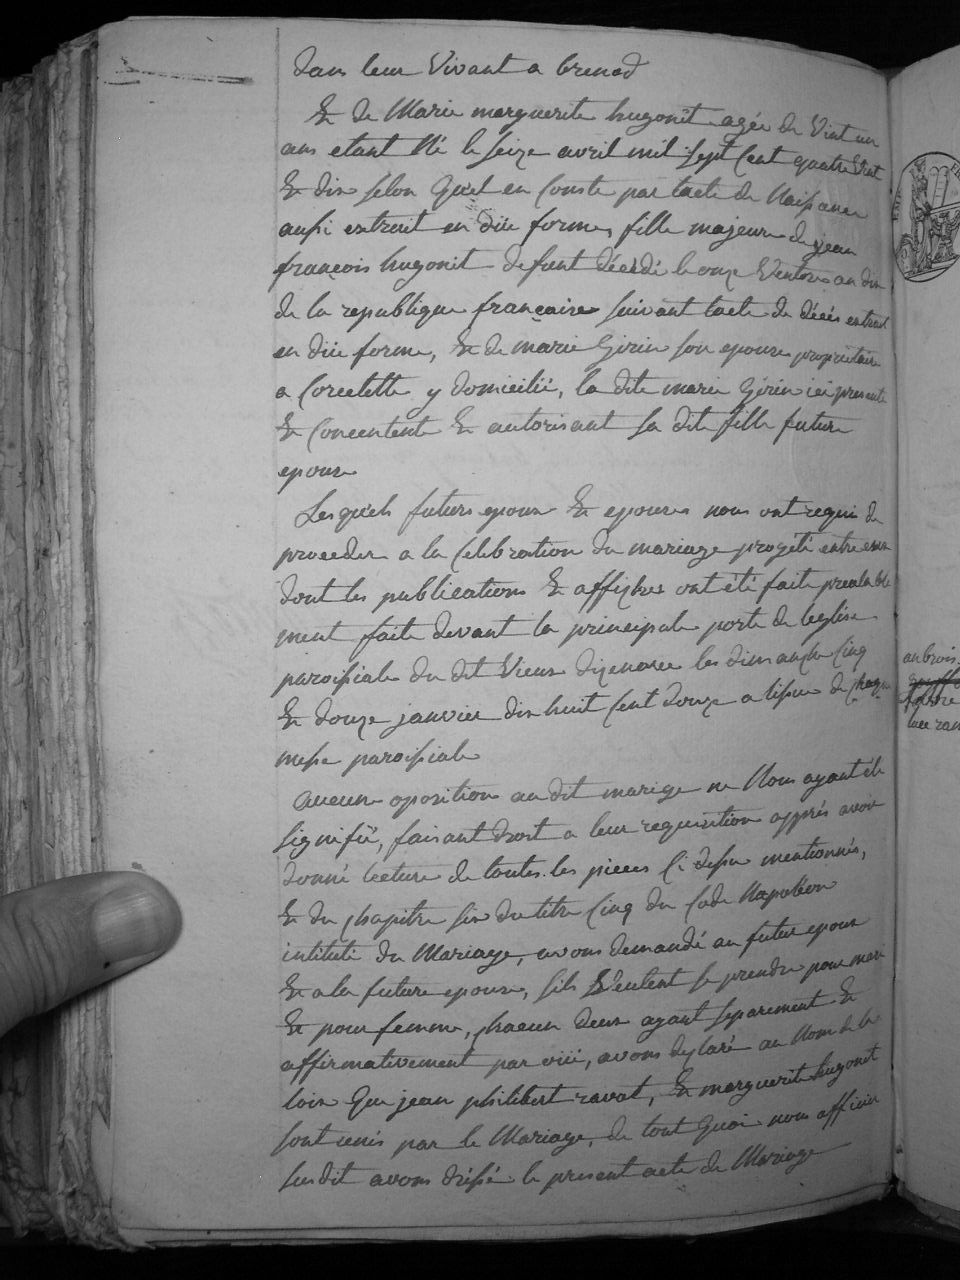 dans leur Vivant a brenod
Et de Marie marguerite hugonit agée de Vint un
ans etant Né le seize avril mil sept Cent quatre Vint
Et dix selon Quel en Conste par lacte de Naissance
aussi extrait en düe forme, fille majeure de jean
françois hugonit defunt décédé le onze Ventose an dix
de la republique française suivant lacte de décés extrait
en düe forme, Et de marie Girin son epouse propriétaire
a Corcelette y domicilié, la dite marie Girin ici presente
Et Concentente Et autorisant sa dite fille future
epouse
Lesquels futurs epoux Et epouse nous ont requi de
proceder a la Celebration du mariage progété entre eux
dont les publications Et affiches ont été faite prealable
ment faite devant la principale porte de leglise
paroissiale du dit Vieux les dimanche Cinq
Et douze janvier dix huit Cent douze a lissue de Chaque
messe paroissiale
aucune oposition au dit mariage ne Nous ayant été
signifié, faisant droit a leur requisition apprés avoir
donné lecture de toutes les pieces Ci dessu mentionnés,
Et du Chapitre six du titre Cinq du Code Napoléon
intitulé du Mariage, avons demandé au futur epoux
Et a la future epouse, sils Veulent se prendre pour mari
Et pour femme, Chacun deux ayant separement Et
affirmativement par oüi, avons declaré au Nom de la
loix Que jean philibert ravat, Et marguerite hugonit
sont unis par le Mariage, de tout Quoi nous officier
susdit avons dréssé le present acte de Mariage